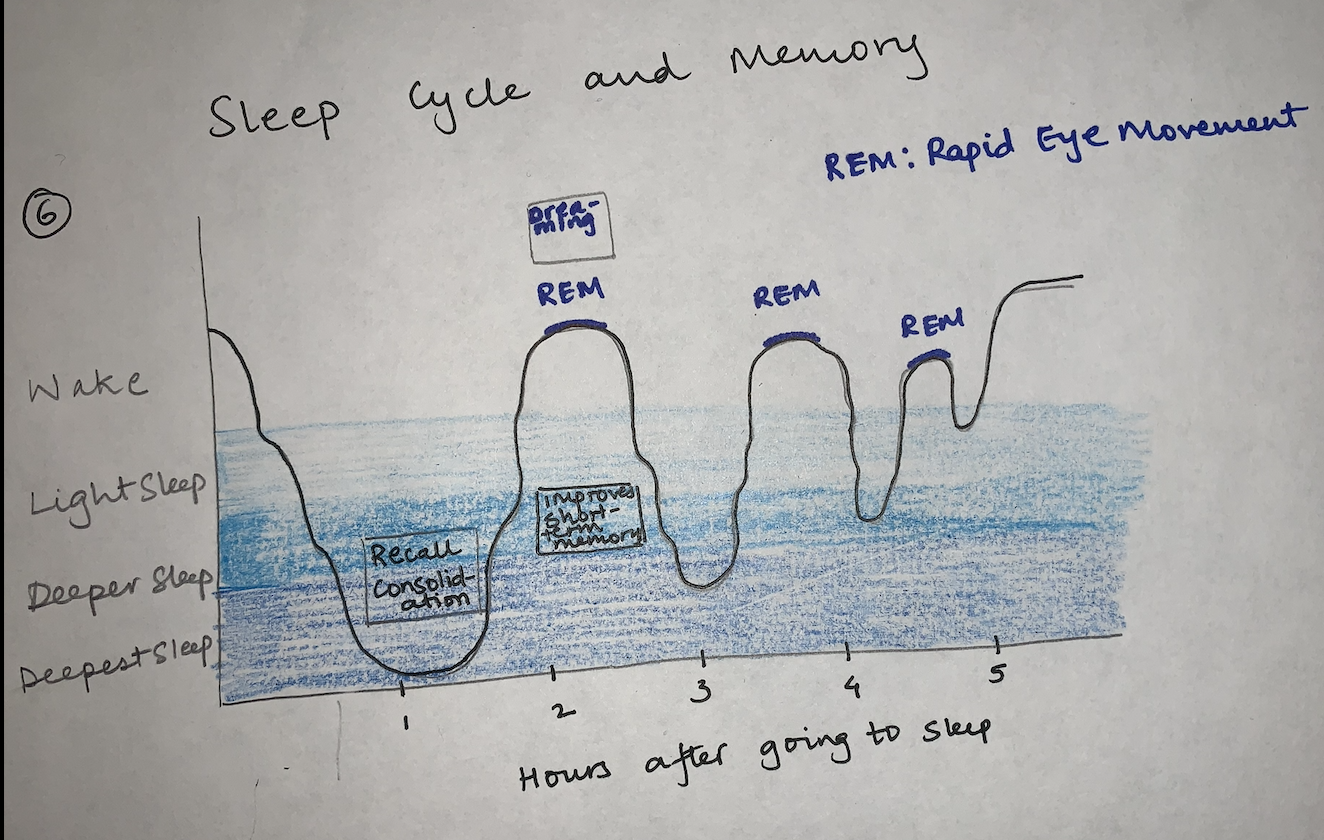 Sleep Cycle and Memory
REM: Rapid Eye Movement
6
Drea-
ming
REM
REM
REM
Wake
Light Sleep
Deeper Sleep
Deepest Sleep
Recall
Consolid-
ation
improves
short-
term
memory
1
2
3
4
5
Hours after going to sleep